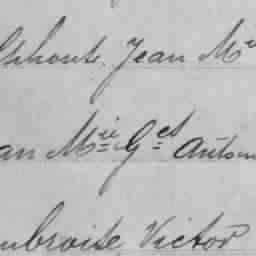 Jean M
an Mie Get Anton
mbroise Victor